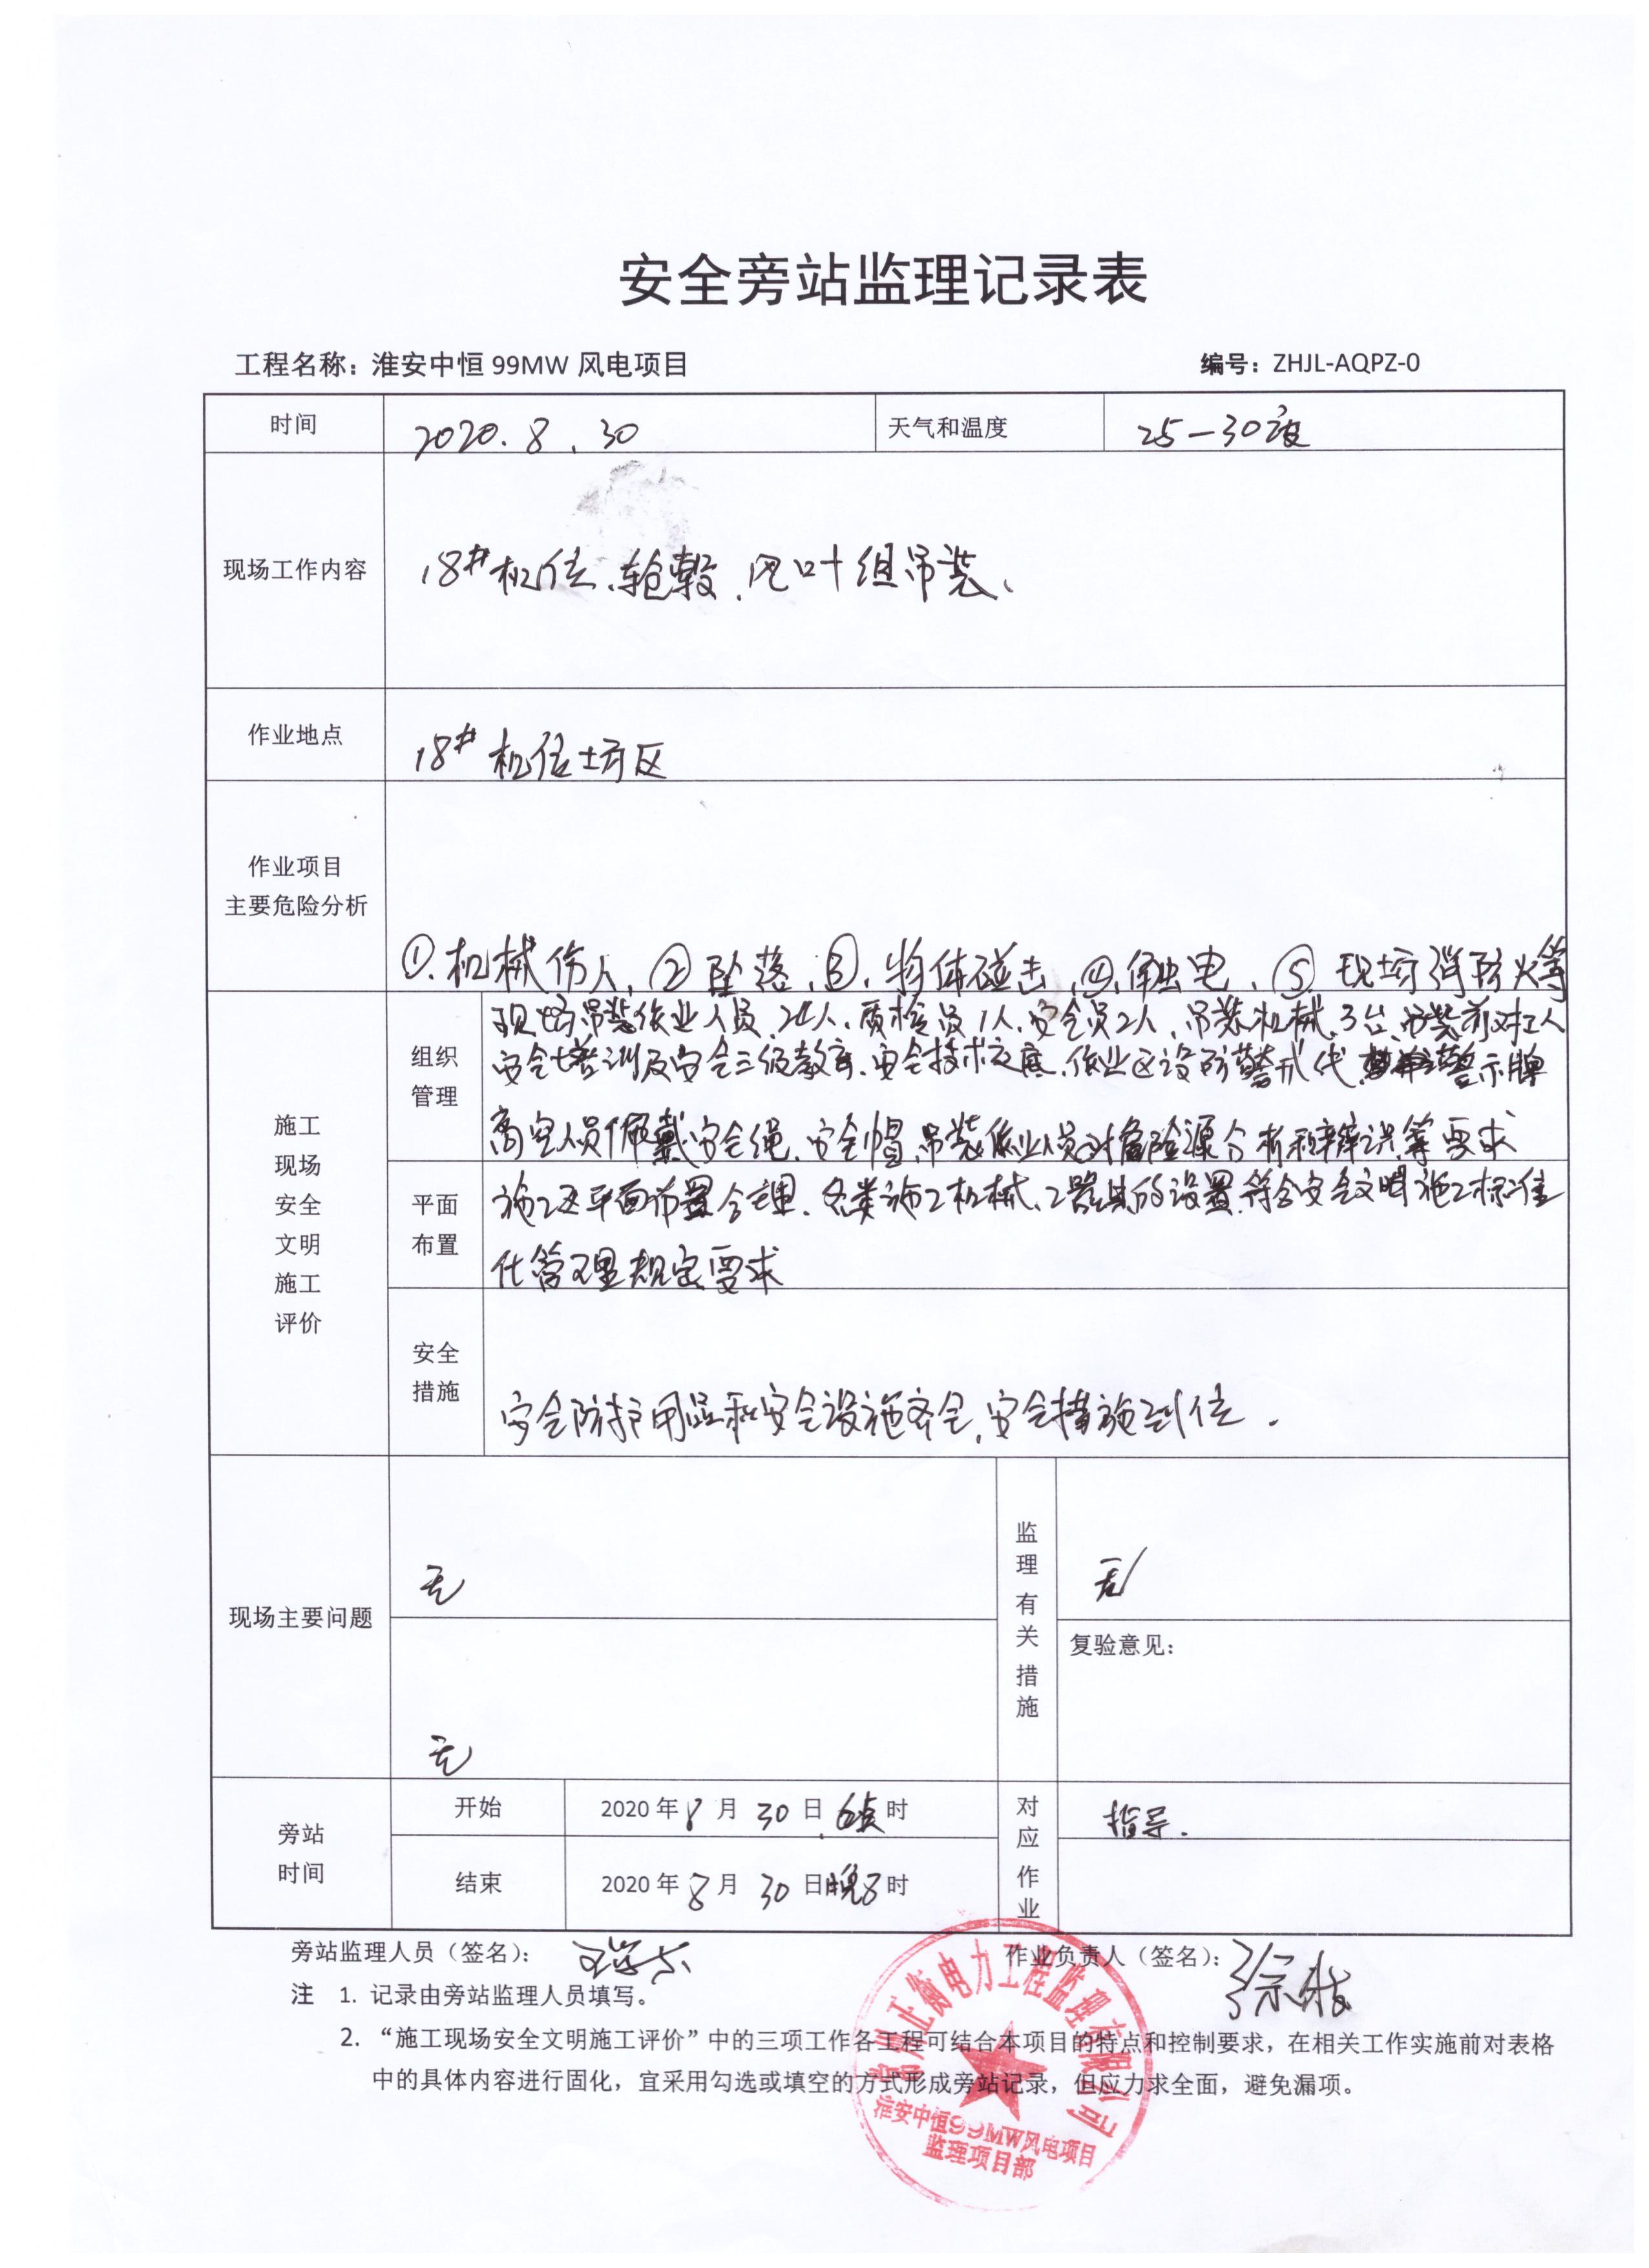 安全旁站监理记录表
工程名称：淮安中恒 99MW 风电项目 编号：ZHJL-AQPZ-0
时间 2020.8.30 天气和温度 25—30度
现场工作内容 18#机位、轮毂、风叶组吊装、
作业地点 18#机位场区
作业项目
主要危险分析
①、机械伤人、②坠落、③、物体碰击、④、触电、⑤、现场消防火等
施工
现场
安全
文明
施工
评价
组织
管理
现场吊装作业人员 人、质检员1人、安全员2人、吊装机械、3台、吊装前对工人
安全培训及安全三级教育、安全技术交底、作业区设防警戒代、警示牌
高空人员佩戴安全绳、安全帽、吊装作业人员对危险源分析和辩识等要求
平面
布置
施工区平面布置合理、各类施工机械、工器具的设置、符合安全文明施工标准
化管理规定要求
安全
措施
安全防护用品和安全设施齐全、安全措施到位.
现场主要问题
无
无
监理有关措施
无
复验意见：
旁站
时间
开始 2020年8月30日 时
结束 2020年8月30日晚8时
对应作业
指导.
旁站监理人员（签名）： 作业负责人（签名）：
注 1. 记录由旁站监理人员填写。
2. “施工现场安全文明施工评价”中的三项工作各工程可结合本项目的特点和控制要求，在相关工作实施前对表格
中的具体内容进行固化，宜采用勾选或填空的方式形成旁站记录，但应力求全面，避免漏项。
常州正衡电力工程监理有限公司
淮安中恒99MW风电项目
监理项目部